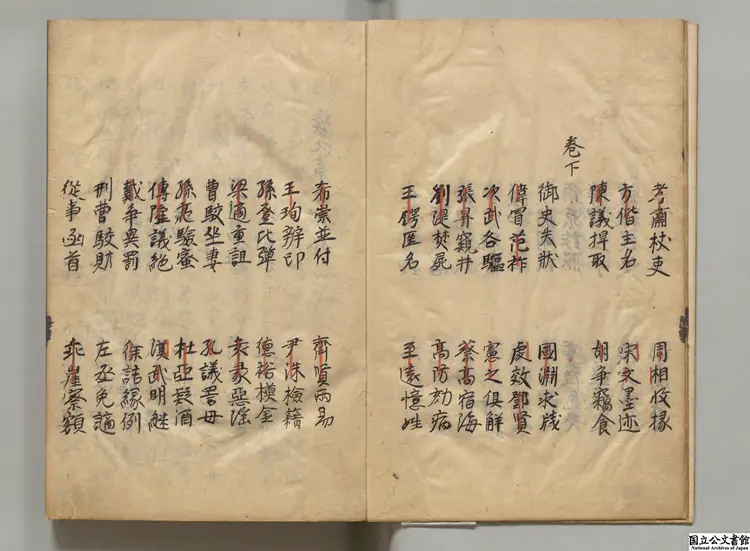 孝肅杖吏 周相收掾
方偕主名 宋文墨迹
陳議捍取 胡爭竊食
卷下
御史失狀 國淵求牋
偉冒范祚 虔效鄧賢
次武各驅 憲之俱解
張昇窺井 蔡高宿海
劉湜焚屍 高防劾病
王鍔匿名 至遠憶姓
希崇並付 齊賢兩易
王珣辨印 尹洙檢籍
孫登比彈 德裕模金
梁適重詛 袁彖恕滛
曹駮坐妻 孔議詈母
孫亮驗蜜 杜亞疑酒
傅隆議絶 漢武明継
戴爭異罰 徐詰縁例
刑曹駮財 左丞免謫
從事函首 乖崖察額
国立公文書館
National Archives of Japan